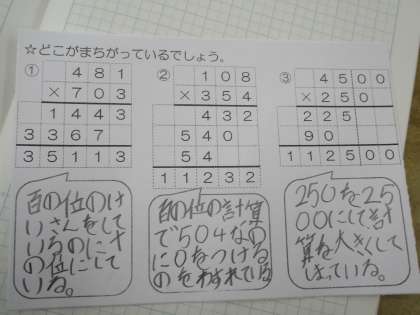 ☆どこがまちがっているでしょう。
① 481
×703
1443
3367
35113
② 108
×354
432
540
54
11232
③ 4500
×250
225
90
112500
百の位のけ
いさんをして
いるのに十
の位にして
いる。
百の位の計算
で504なの
に0をつける
のをわすれている
250を25
00にして計
算を大きくして
しまっている。